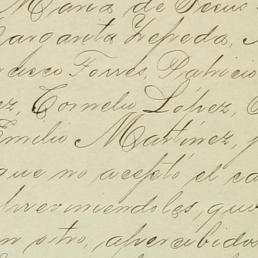 Maria de Jesus
Margarita Zepeda,
cisco Torres, Patricio
ez, Cornelio López,
Emilio Martinez,
que no aceptó el ca
dvirtiendoles, que
n otro, apercibidos